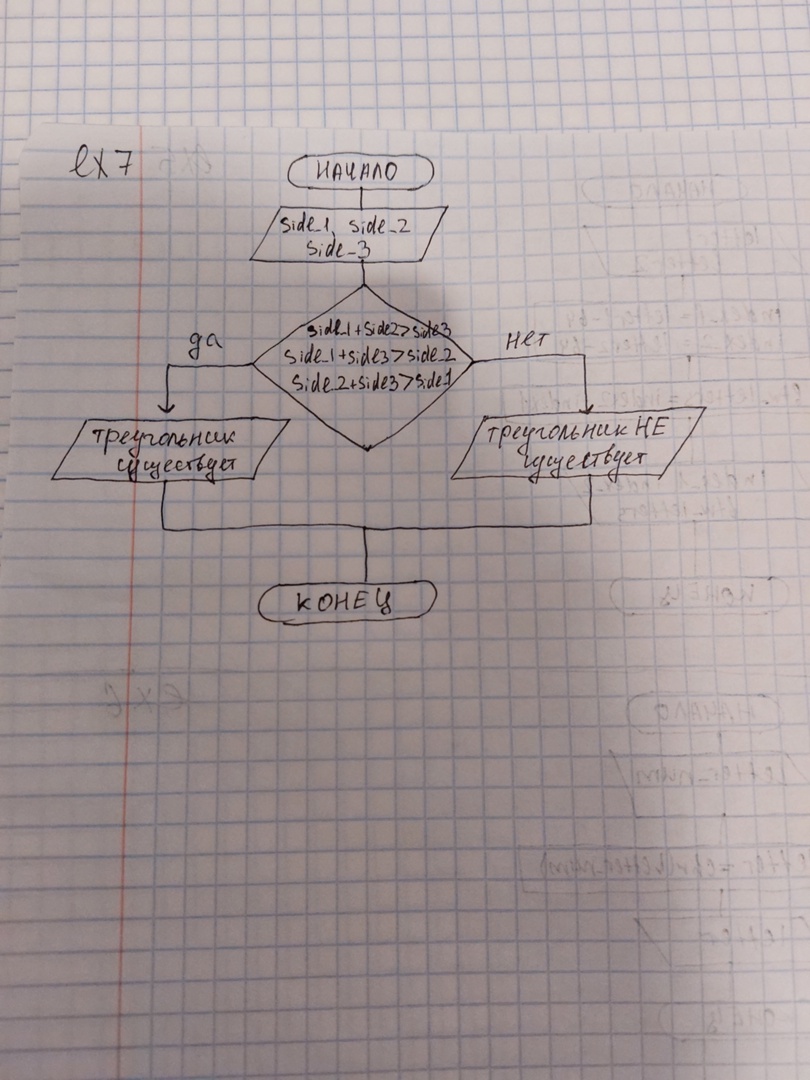 ex 7
НАЧАЛО
side_1, side_2
side_3
side_1+side2>side3
side_1+side3>side_2
side_2+side3>side1
да
нет
треугольник
существует
треугольник НЕ
существует
КОНЕЦ